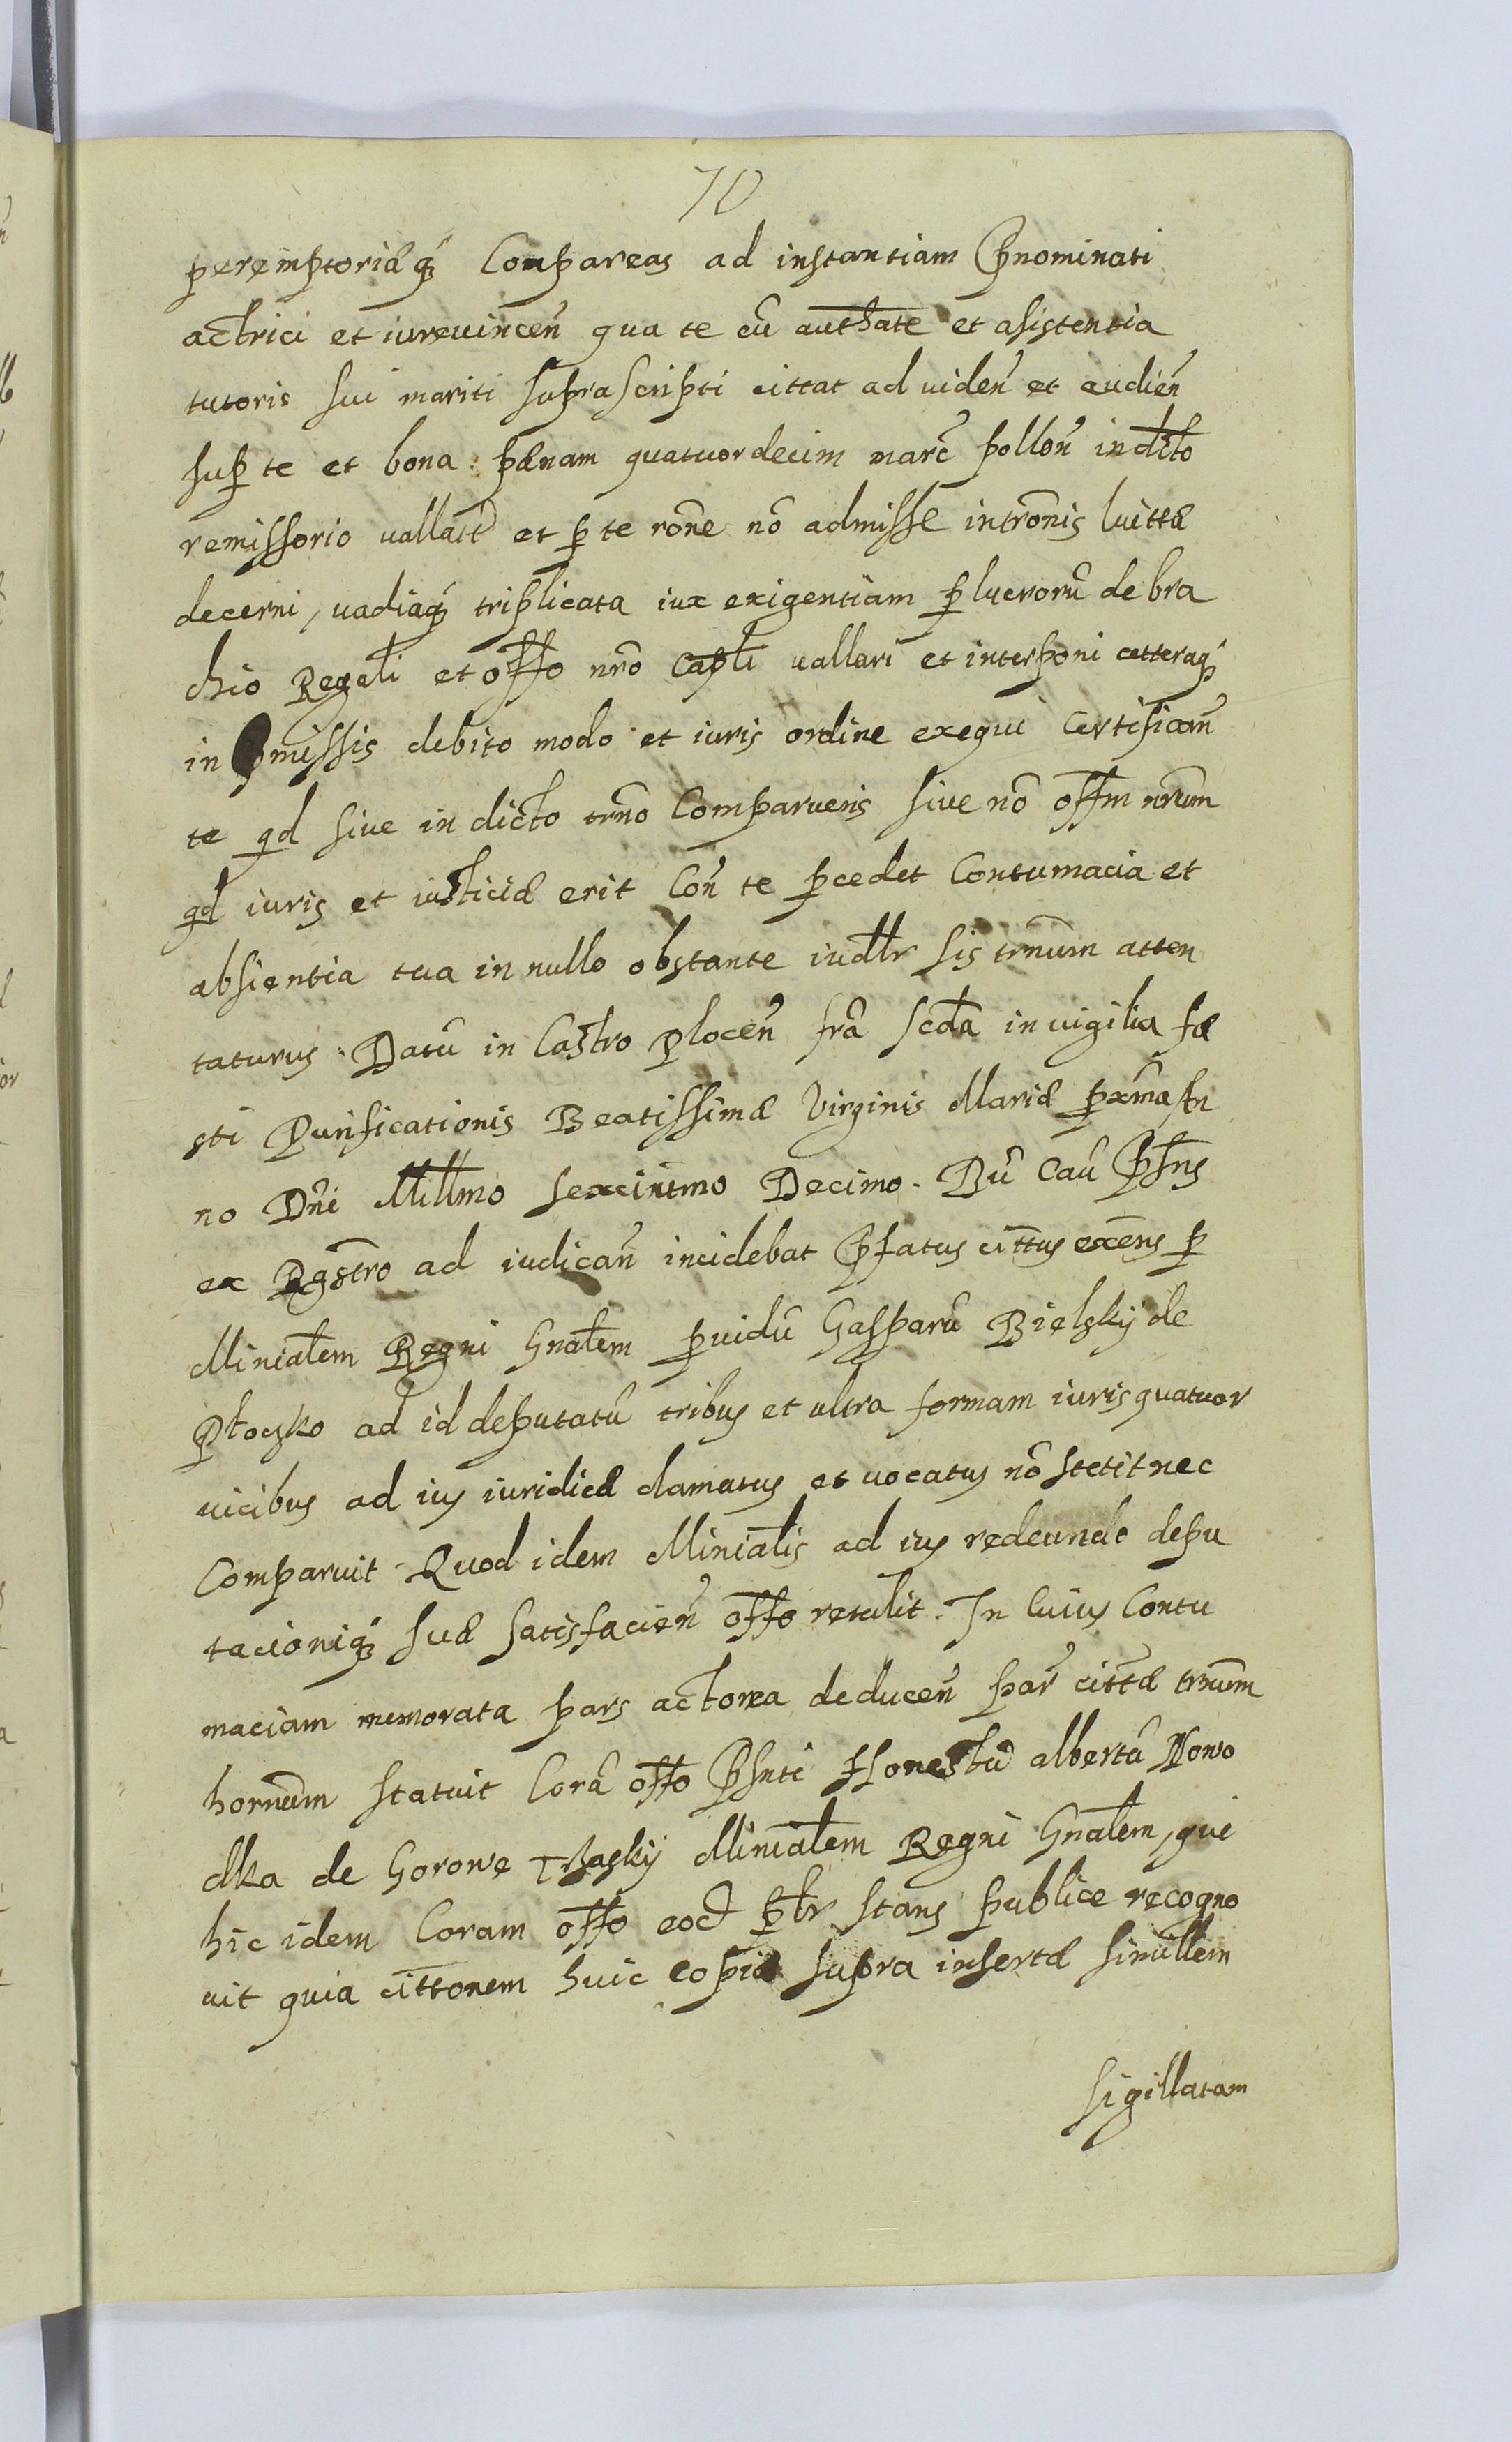 70
peremptoriaq₃ Compareas ad instantiam Pnominati
actrici et iurevincen̄ qua te cū authate et asistentia
tutoris sui mariti suprascripti cittat ad viden̄ et audien̄
sup te et bona pænam quatuordecim marc̄ pollon̄ in dēto
remissorio vallatā et p te rōne nō admissæ intrōnis luittæ
decerni, vadiaq₃ triplicata iux exigentiam plucrorū de bra
chio Regali et offo nrō Capli vallari et interponi cetteraq₃
in pmissis debito modo et iuris ordine exequi Certifican̄
te qd sive in dicto trno Comparueris sive nō offm nrum
qd iuris et iusticiæ erit Con̄ te pcedet Contumacia et
absientia tua in nullo obstante iudlr sis trnum atten
taturus. Datū in Castro Plocen̄ fra scda in vigilia fæ
sti Purificationis Beatissimæ Virginis Mariæ pxma An
no Dn̄i Millmo sexcintmo Decimo. Dū Cau Psns
ex Rgstro ad iudican̄ incidebat Pfatus cittus exens p
Minialem Regni Gnalem pvidū Gasparū Bielsky de
Płoczko ad id deputatū tribus et ultra formam iuris quatuor
vicibus ad ius iuridicæ clamatus et vocatus nō stetit nec
Comparuit. Quod idem Minialis ad ius redeundo depu
tacioniq₃ suæ satisfacien̄ offo retulit. In Cuius Contu
maciam memorata pars actorea deducen̄ par̄ cittæ trnum
hornum statuit Corā offo Psnti Honestū albertū Nowo
dka de Gorowe Trzasky Minialem Regni Gnalem, qui
hic idem Coram offo eod pltr stans publice recogno
vit quia cittonem huic copiæ supra insertæ simillem
sigillatam